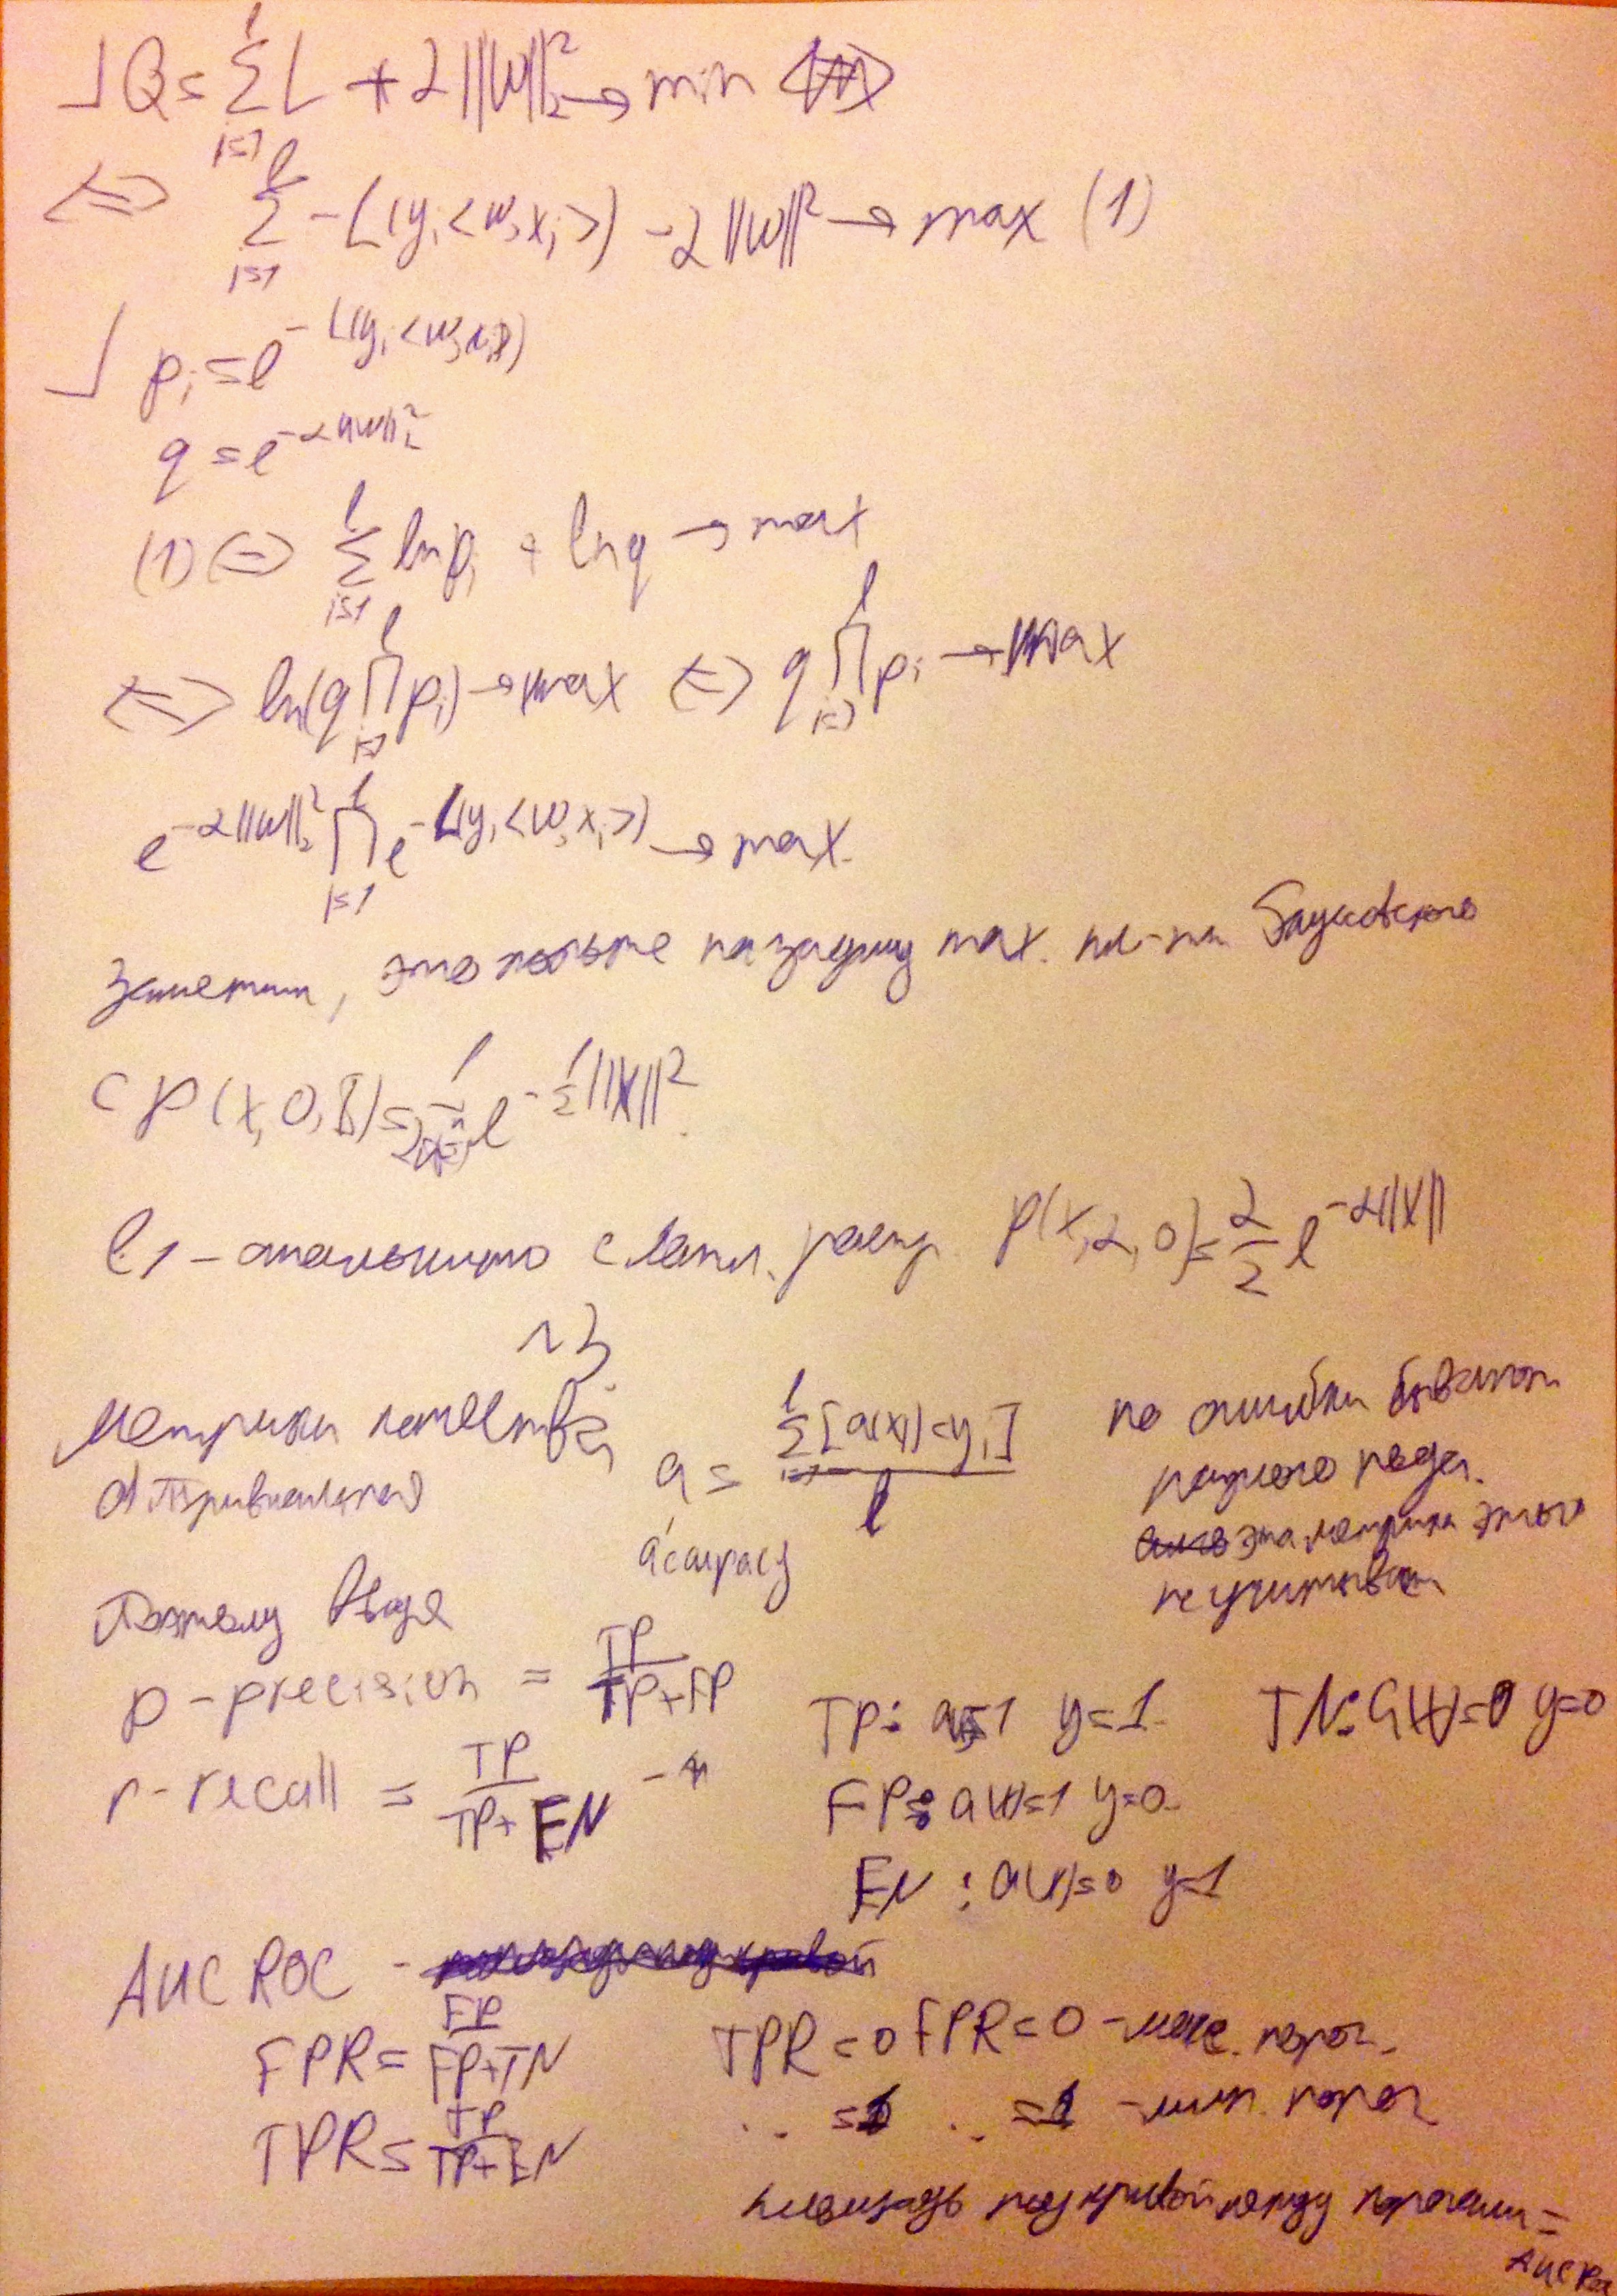 ⅃ Q = Σ_{i=1}^{l} L + α||w||_2^2 → min
⇔ Σ_{i=1}^{l} -L(y_i<w,x_i>) - α||w||^2 → max (1)
⅃ p_i = e^{-L(y_i<w,x_i>)}
q = e^{-α||w||_2^2}
(1) ⇔ Σ_{i=1}^{l} ln p_i + ln q → max
⇔ ln(q Π_{i=1}^{l} p_i) → max ⇔ q Π_{i=1}^{l} p_i → max
e^{-α||w||_2^2} Π_{i=1}^{l} e^{-L(y_i<w,x_i>)} → max.
Заметим, это похоже на задачу max. пл-ти Гауссовского
с p(x,0,I) = e^{-1/2||x||^2}
l1 - аналогично с лапл. распр. p(x,α,0) = α/2 e^{-α||x||}
~3
Метрики качества
Тривиальная a = Σ_{i=1}^{l}[a(x_i)=y_i] / l
accuracy
но ошибки бывают
разного рода.
эта метрика этого
не учитывает
Поэтому
p - precision = TP/(TP+FP)
r - recall = TP/(TP+FN)
TP: a=1 y=1 TN: a(x)=0 y=0
FP: a(x)=1 y=0
FN: a(x)=0 y=1
AUC ROC -
FPR = FP/(FP+TN) TPR=0 FPR=0 - макс. порог.
TPR = TP/(TP+FN) .. =1 .. =1 - мин. порог
площадь под кривой между порогами =
AUC ROC